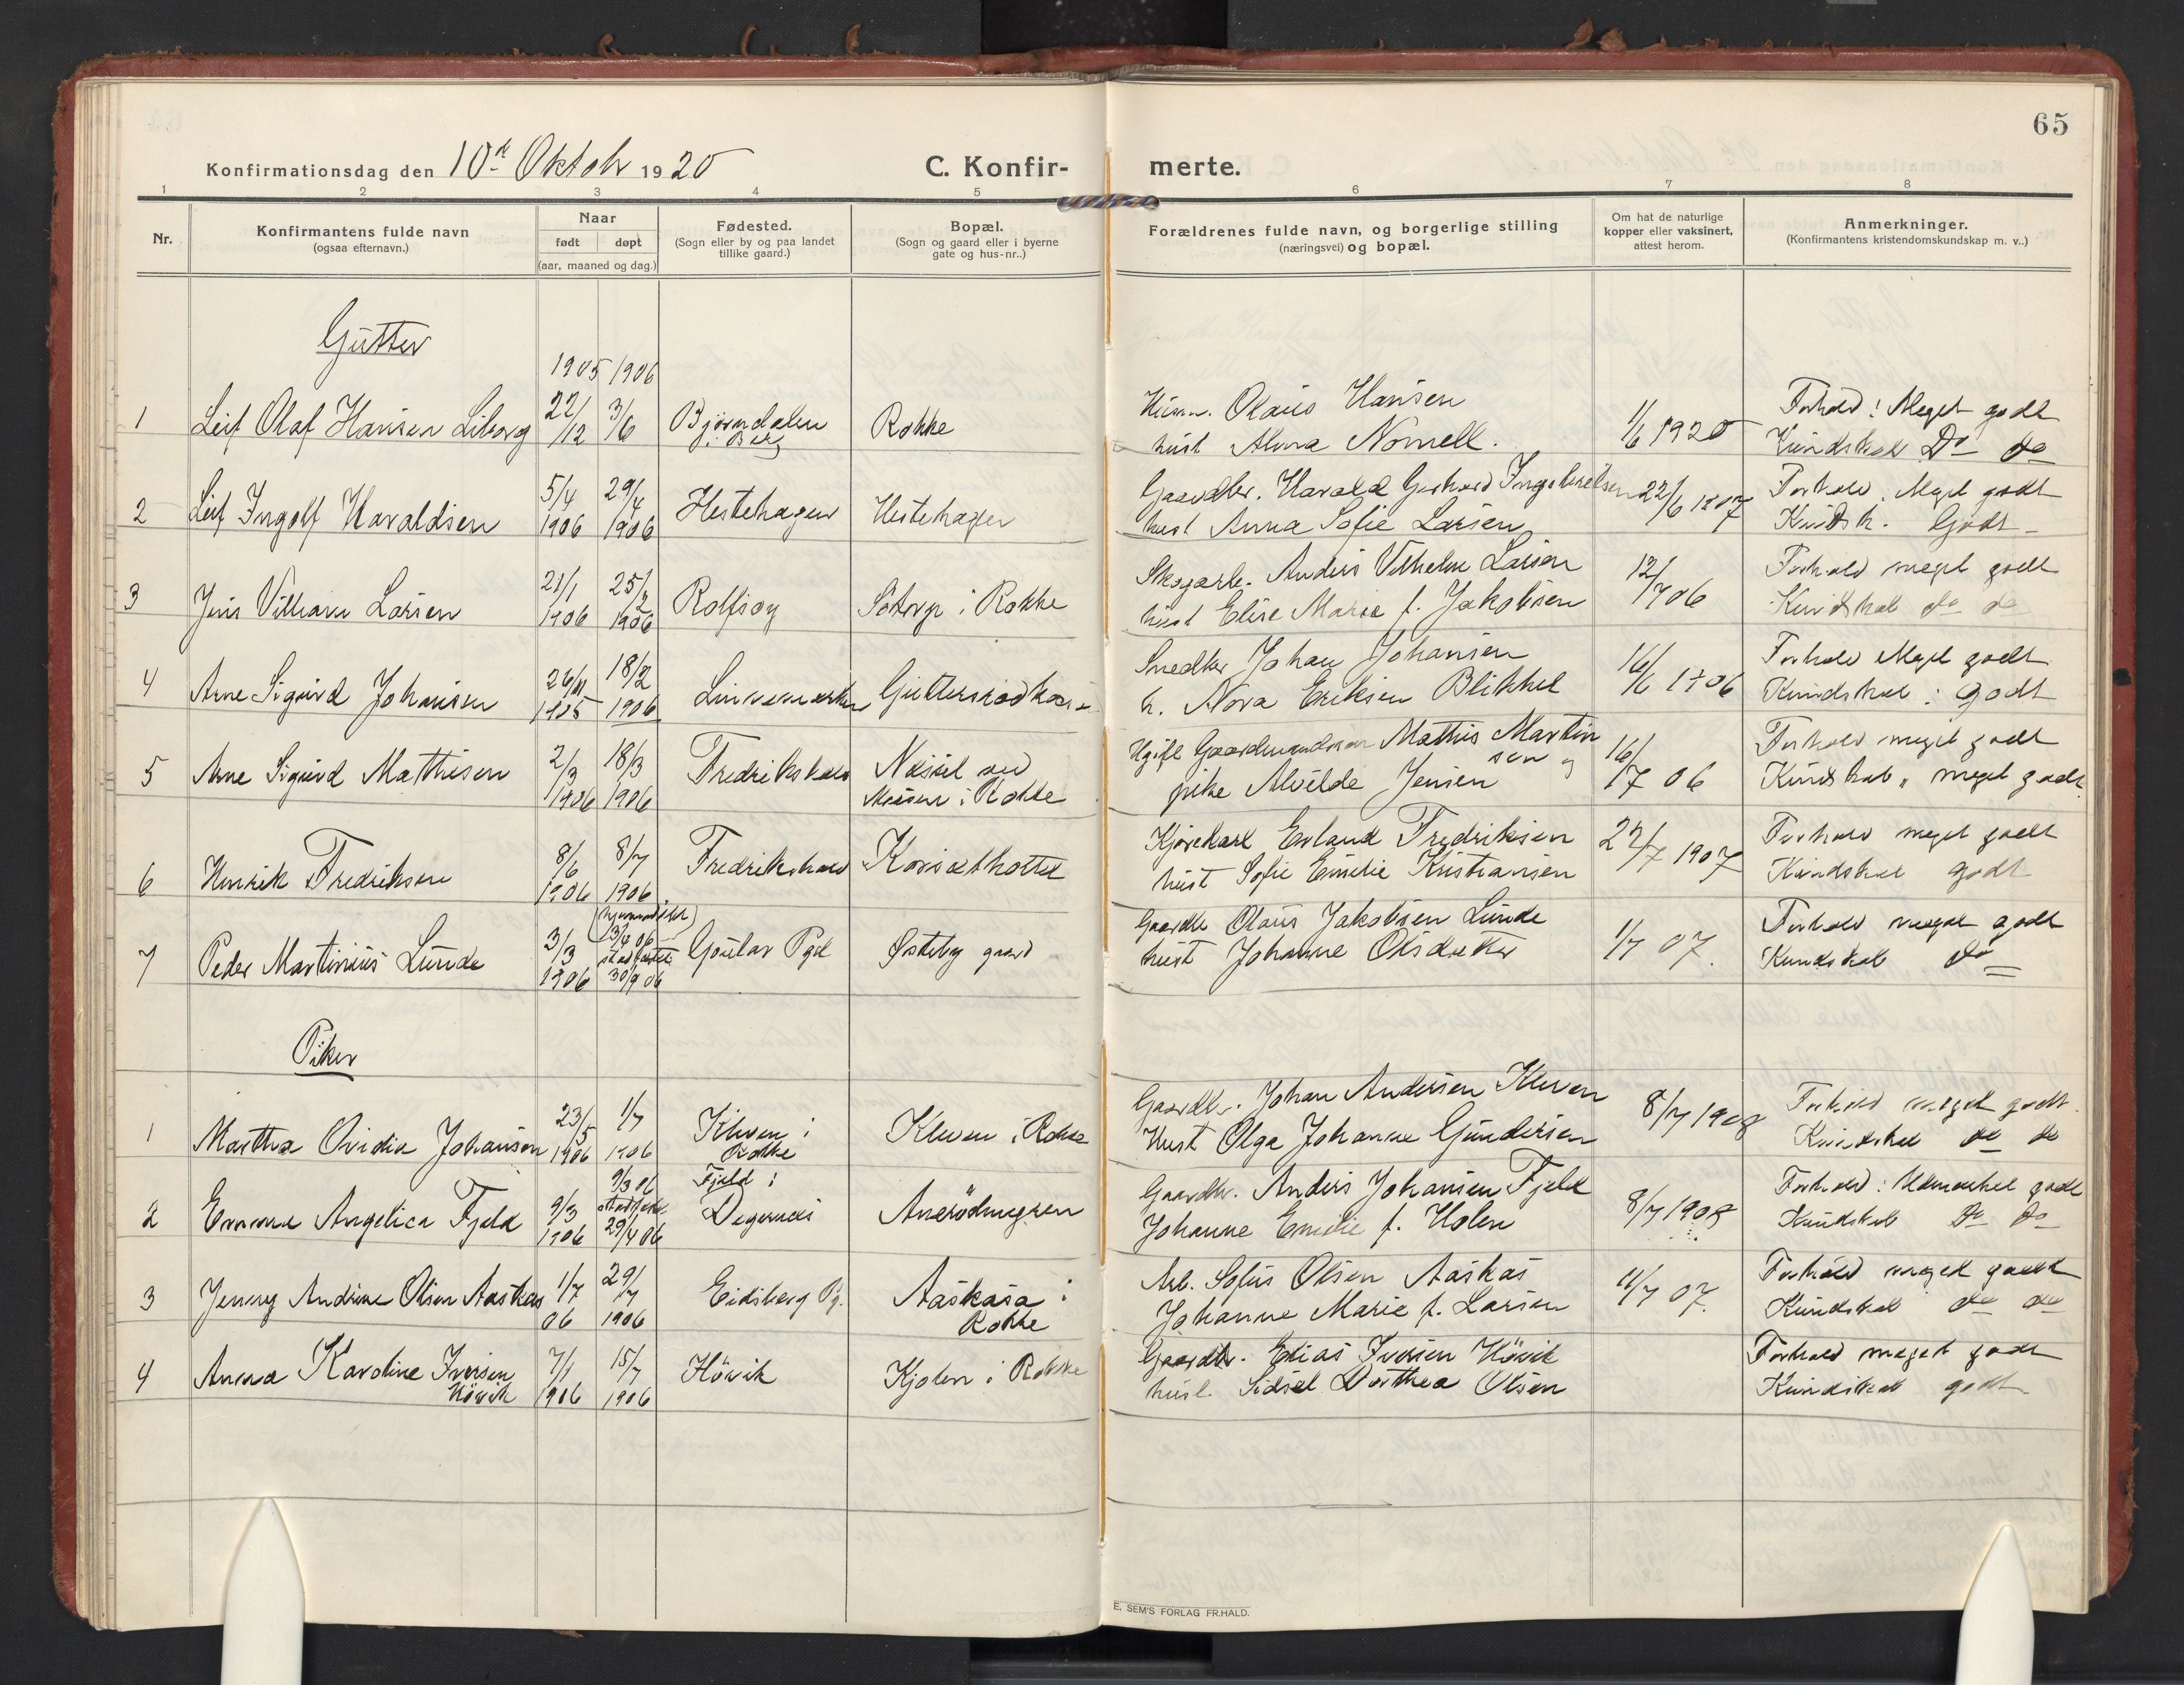 65
Konfirmationsdag den 10de Oktob 1920
C. Konfir-
merte.
1 2 3 4 5 6 7 8
Nr.
Konfirmantens fulde navn
(ogsaa efternavn.)
Naar
født døpt
(aar, maaned og dag.)
Fødested.
(Sogn eller by og paa landet
tillike gaard.)
Bopæl.
(Sogn og gaard eller i byerne
gate og hus-nr..)
Forældrenes fulde navn, og borgerlige stilling
(næringsvei) og bopæl.
Om hat de naturlige
kopper eller vaksinert,
attest herom.
Anmerkninger.
(Konfirmantens kristendomskundskap m. v..)
Gutter
1905 1906
1 Leif Olaf Hansen Liborg 22/12 3/6 Bjørndalen i Berg Rokke
Olaus Hansen
hust Alma Nornell. 1/6 1920
Forhold: Meget godt
Kundskab Do do
2 Leif Ingolf Haraldsen 5/4 1906 29/4 1906 Hestehagen Hestehagen
Gaardbr. Harald Gerhard Ingebretsen
hust Anna Sofie Larsen 22/6 1907
Forhold. Meget godt
Kundsk. Godt
3 Jens Villiam Larsen 21/1 1906 25/2 1906 Rolfsøy Sotorp i Rokke
Skogarb. Anders Vilhelm Larsen
hust Elise Marie f. Jakobsen 12/7 06
Forhold meget godt
Kundskab do do
4 Arne Sigurd Johansen 26/11 1905 18/2 1906
Snedker Johan Johansen
h. Nora Eriksen Blikket 16/6 1906
Forhold Meget godt
Kundskab: godt
5 Arne Sigurd Mathisen 2/3 1906 18/3 1906 Fredrikshald
i Rokke
Ugift Gaardmandssøn Mathis Martin
sen og
pike Alvilde Jensen 16/7 06
Forhold meget godt
Kundskab, meget godt
6 Henrik Fredriksen 8/6 1906 8/7 1906 Fredrikshald
Kjørekarl Erland Fredriksen
hust Sofie Emilie Kristiansen 22/7 1907
Forhold meget godt
Kundskab godt
7 Peder Martinius Lunde 3/3 1906 (hjemmedøbt) 3/4 06 stadfæstet 30/9 06 Østeby gaard
Gaardbr Olaus Jakobsen Lunde
hust Johanne Olsdatter 1/7 07.
Forhold meget godt
Kundskab do
Piker
1 Martha Ovidia Johansen 23/5 1906 1/7 1906 Kleven i Rokke Kleven i Rokke
Gaardbr. Johan Andersen Kleven
Hust Olga Johanne Gundersen 8/7 1908
Forhold meget godt
Kundskab do do
2 Emma Angelica Fjeld 9/3 1906 9/3 06 stadfæst. 29/4 06 Fjeld i Degernes Anerødmyren
Gaardbr. Anders Johansen Fjeld
Johanne Emilie f. Holen 8/7 1908
Forhold: Udmerket godt
Kundskab Do Do
3 Jenny Andrine Olsen Aaskas 1/7 06 29/7 1906 Eidsberg Pg. Aaskasa i Rokke
Arb. Sofus Olsen Aaskas
Johanne Marie f. Larsen 11/7 07.
Forhold meget godt
Kundskab do do
4 Anna Karoline Iversen Høvik 7/1 1906 15/7 1906 Høvik Kjølen i Rokke
Gaardbr. Elias Iversen Høvik
hust Sidsel Dorthea Olsen
Forhold meget godt
Kundskab godt
E. SEM'S FORLAG FR.HALD.